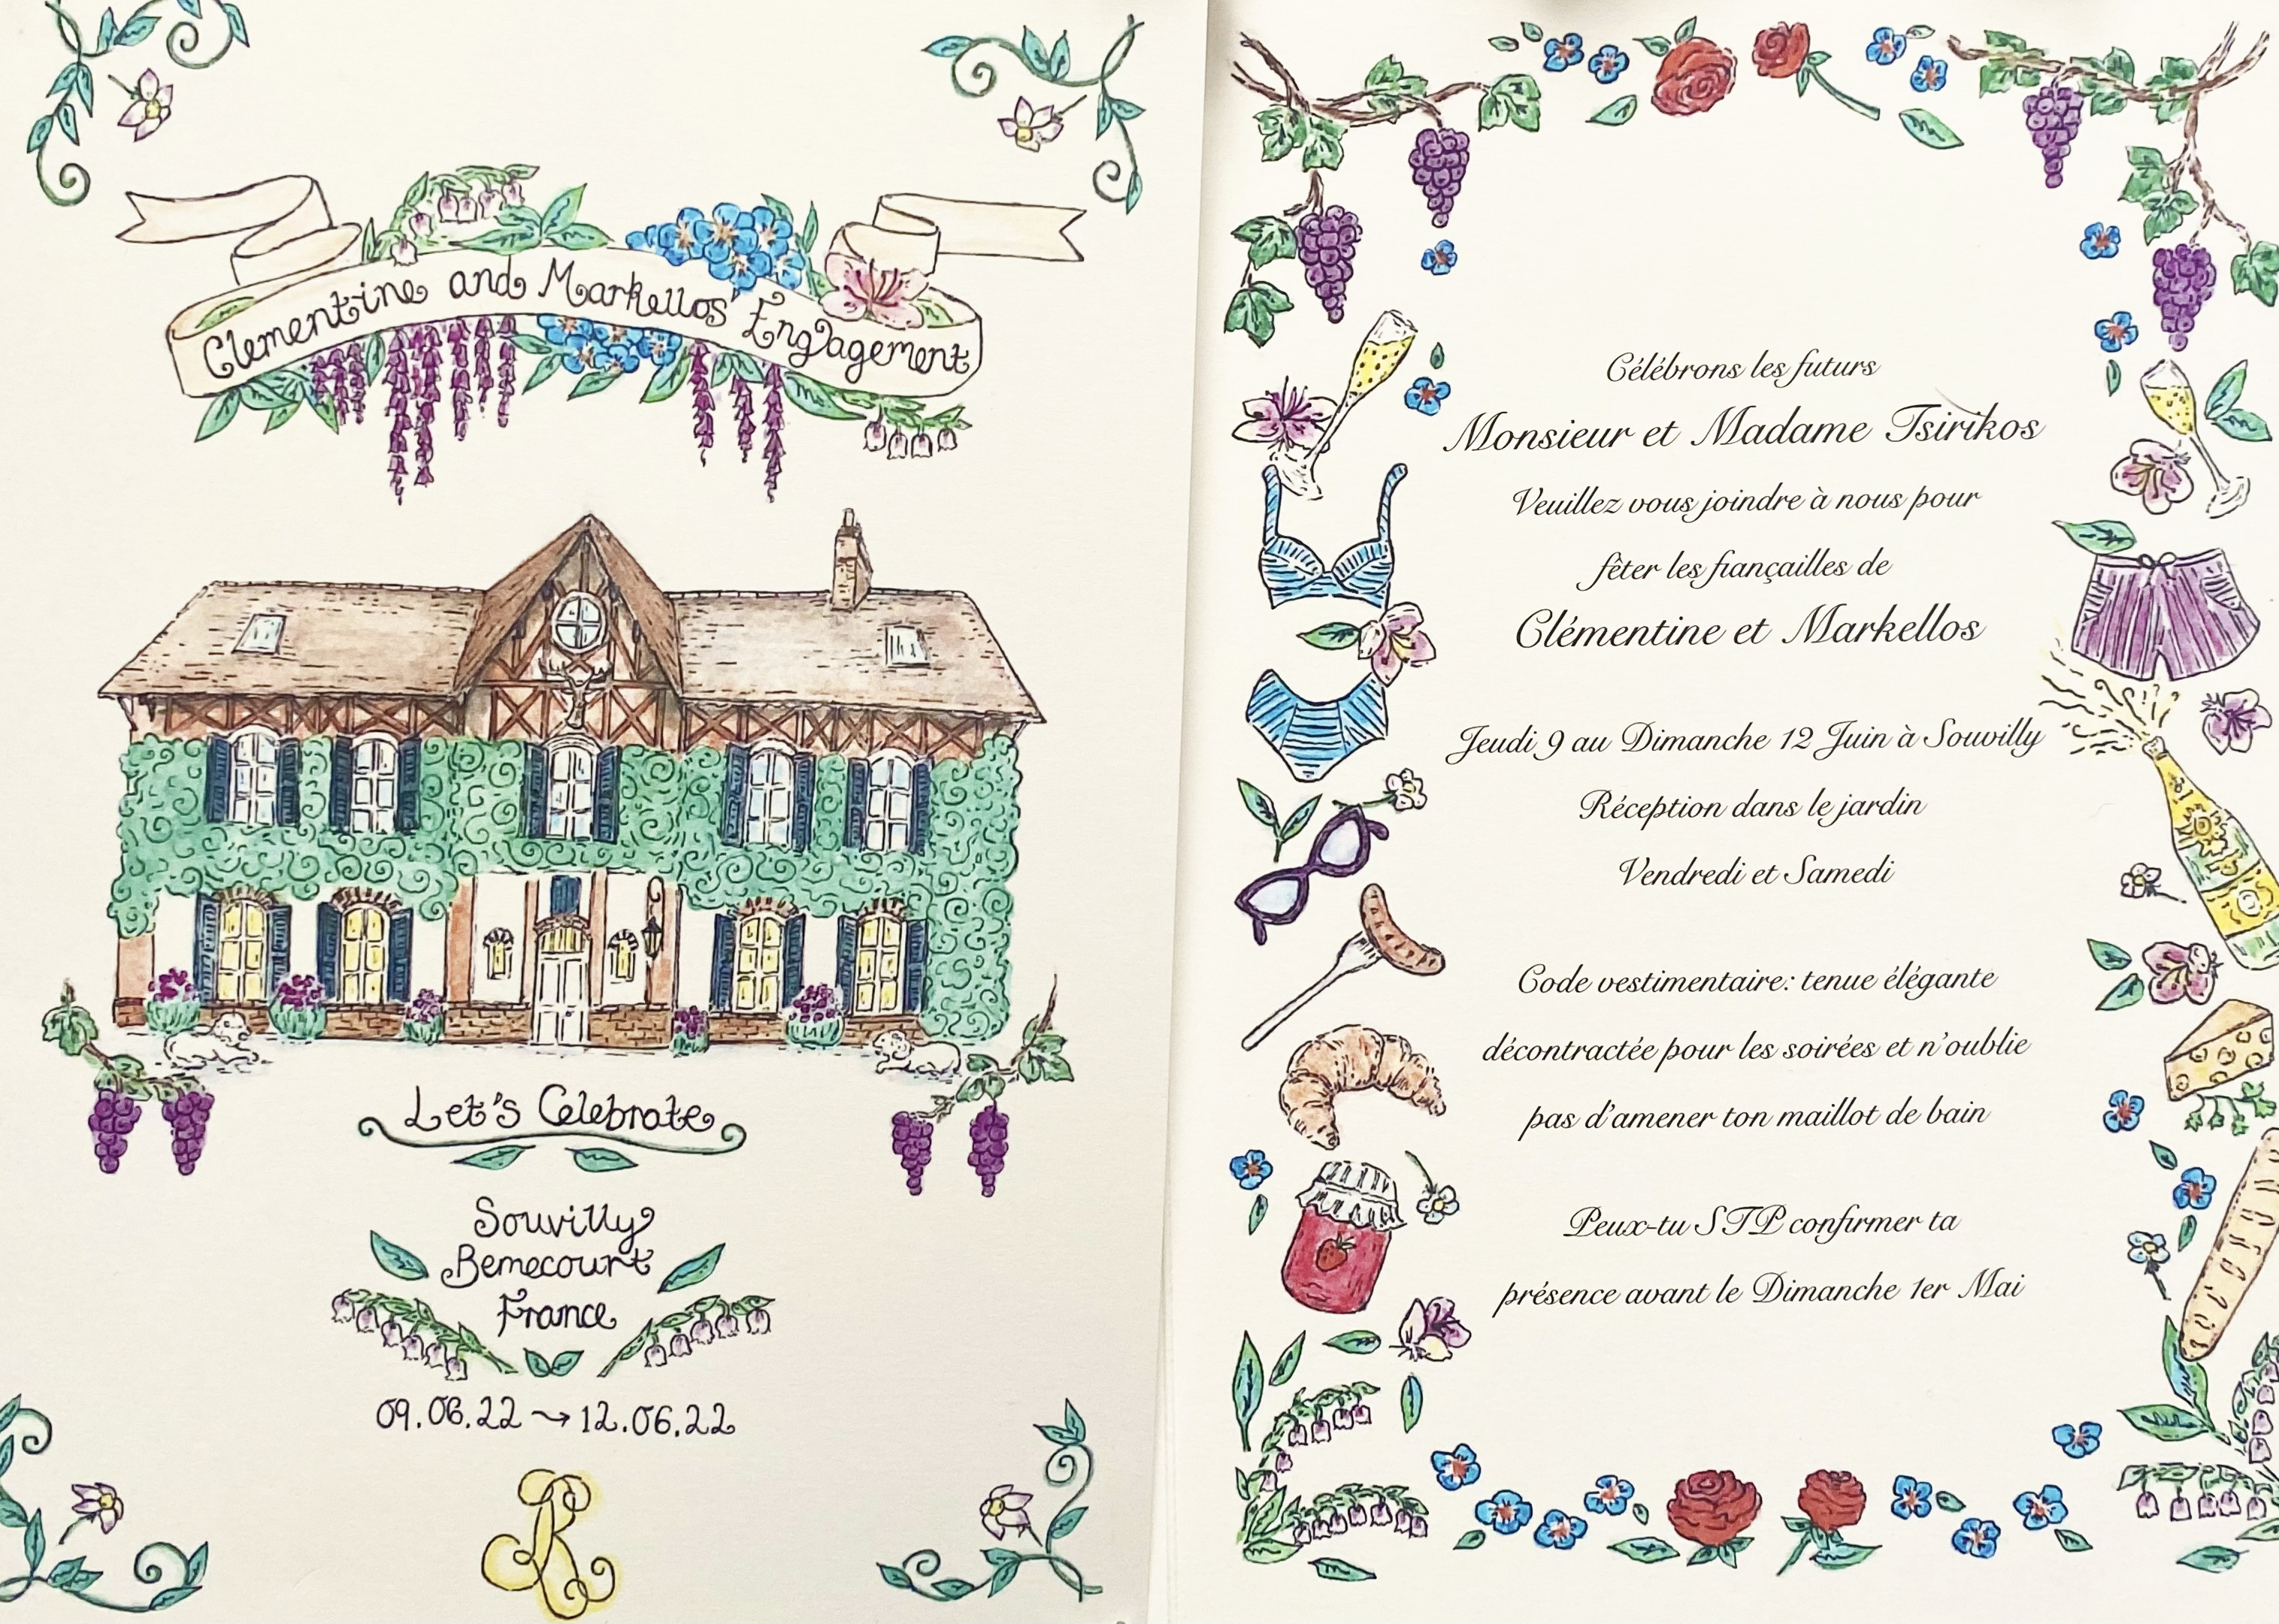 Clementine and Markellos' Engagement
Let's Celebrate
Souvilly
Bemecourt
France
09.06.22 → 12.06.22
Célébrons les futurs
Monsieur et Madame Tsirikos
Veuillez vous joindre à nous pour
fêter les fiançailles de
Clémentine et Markellos
Jeudi 9 au Dimanche 12 Juin à Souvilly
Réception dans le jardin
Vendredi et Samedi
Code vestimentaire: tenue élégante
décontractée pour les soirées et n'oublie
pas d'amener ton maillot de bain
Peux-tu STP confirmer ta
présence avant le Dimanche 1er Mai